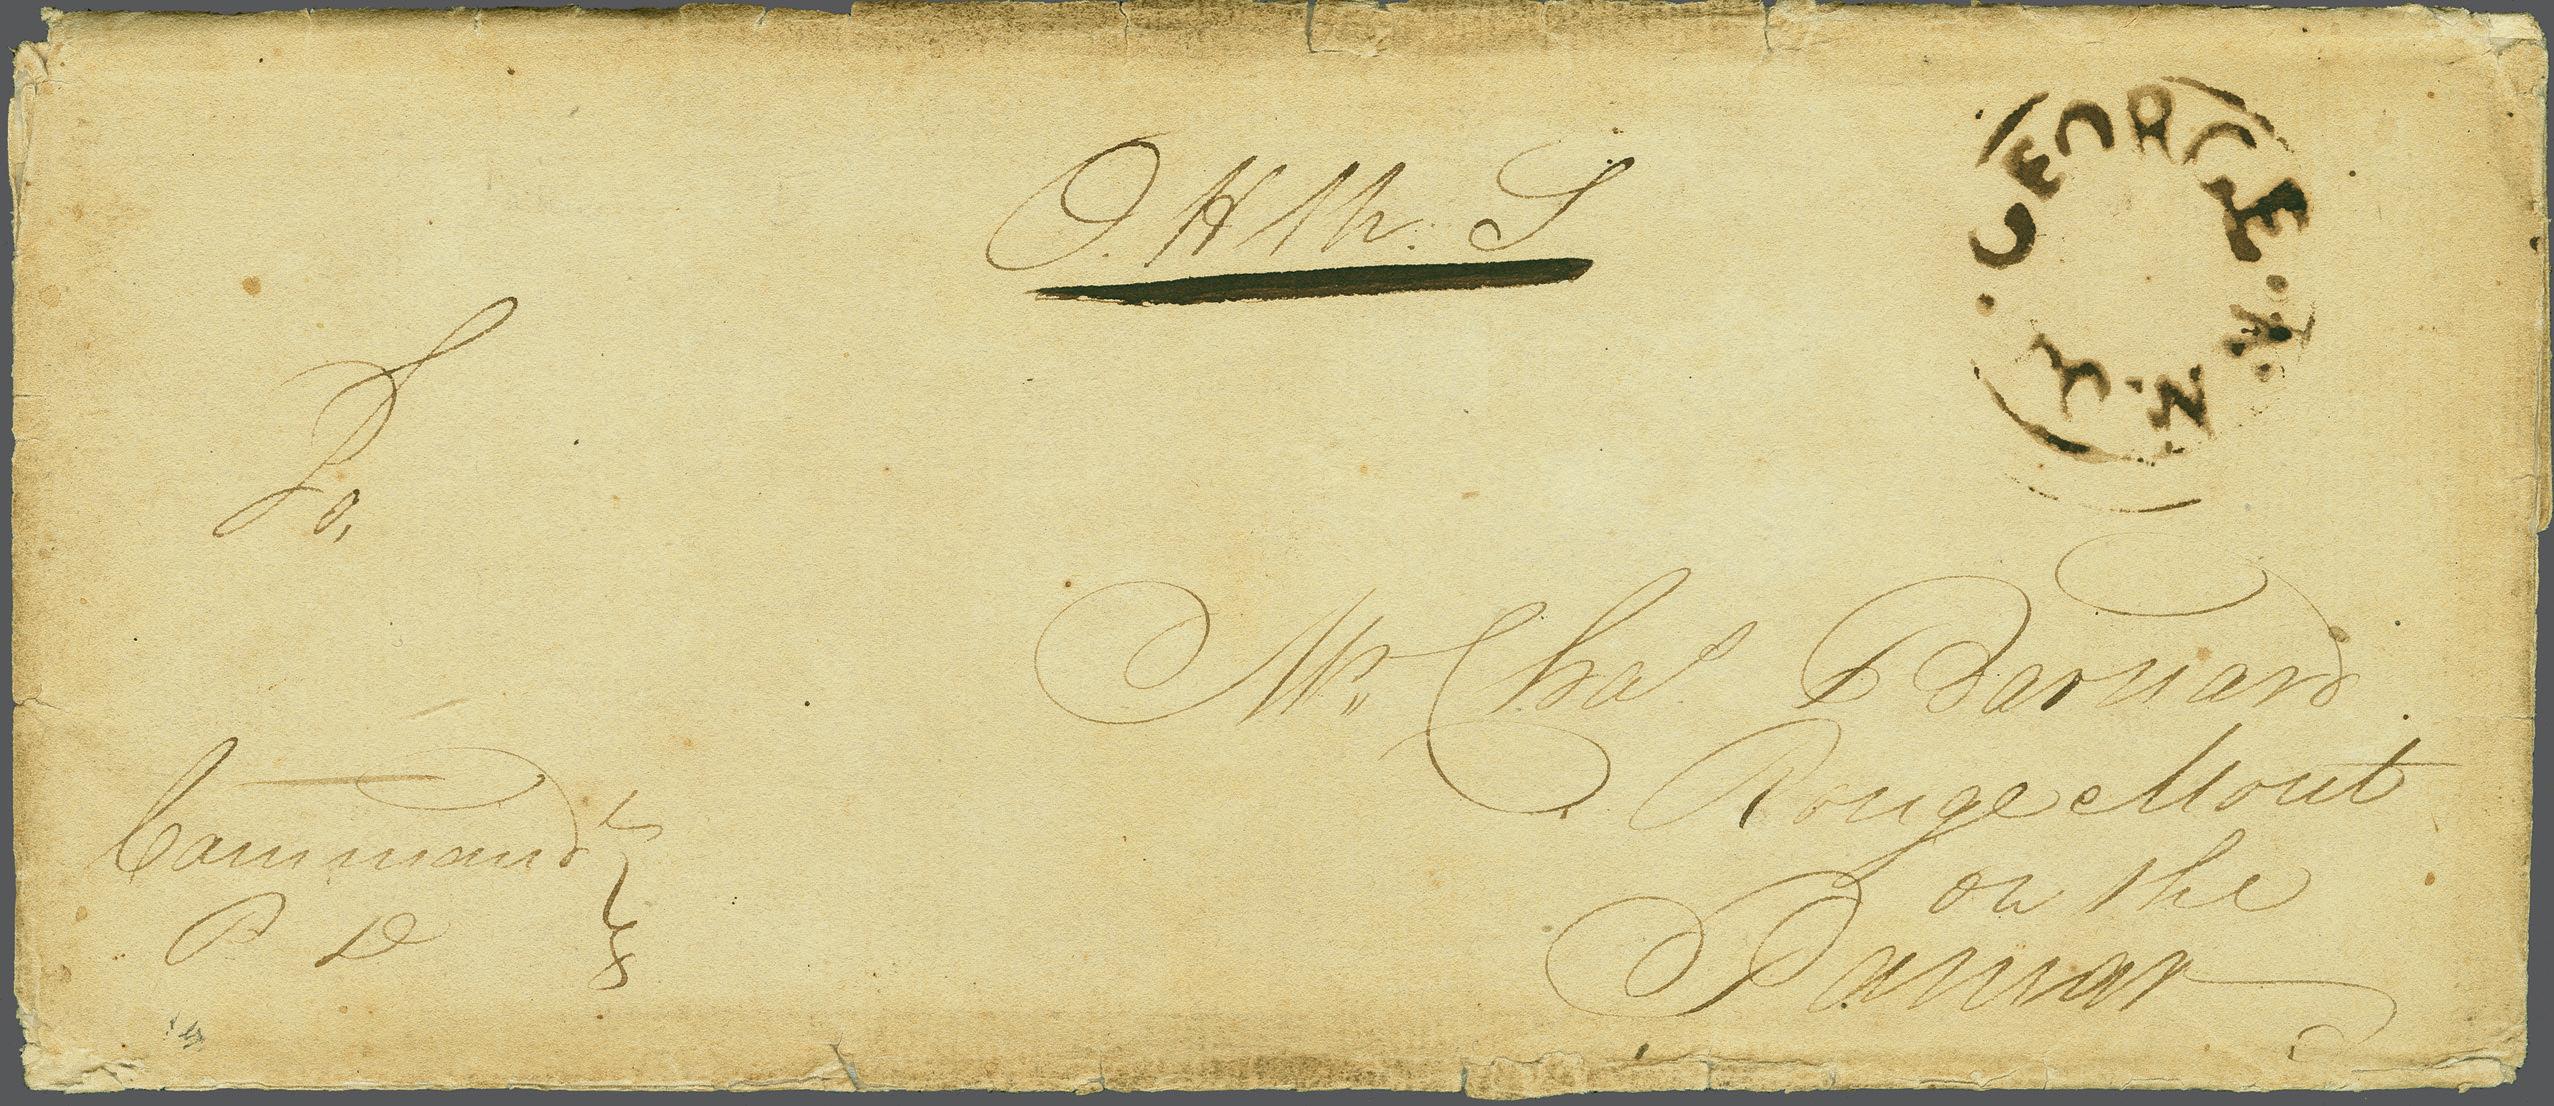 O. H M. S
GEORGE.
N.
To,
Mr. Chas. Barnard
Rouge Mont
on the
Pamar
Command
P D